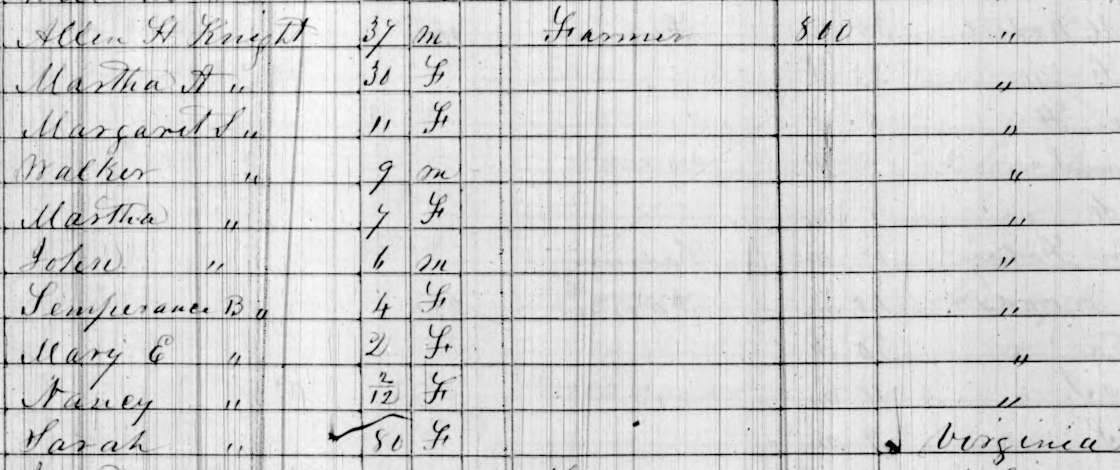 Allen H Knight 37 m Farmer 800 "
Martha A " 30 F "
Margaret S " 11 F "
Walker " 9 m "
Martha " 7 F "
John " 6 m "
Temperance B " 4 F "
Mary E " 2 F "
Nancy " 2/12 F "
Sarah " 80 F Virginia